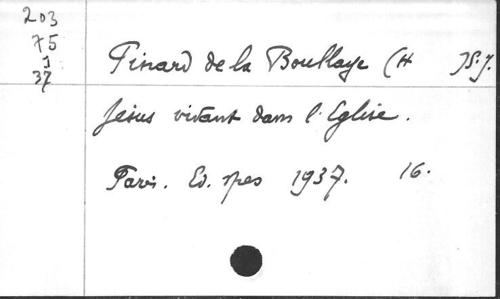 203
75
1
37
Pinard de la Boullaye (H )S.J.
Jésus vivant dans l'Eglise.
Paris. Ed. spes 1937. 16.